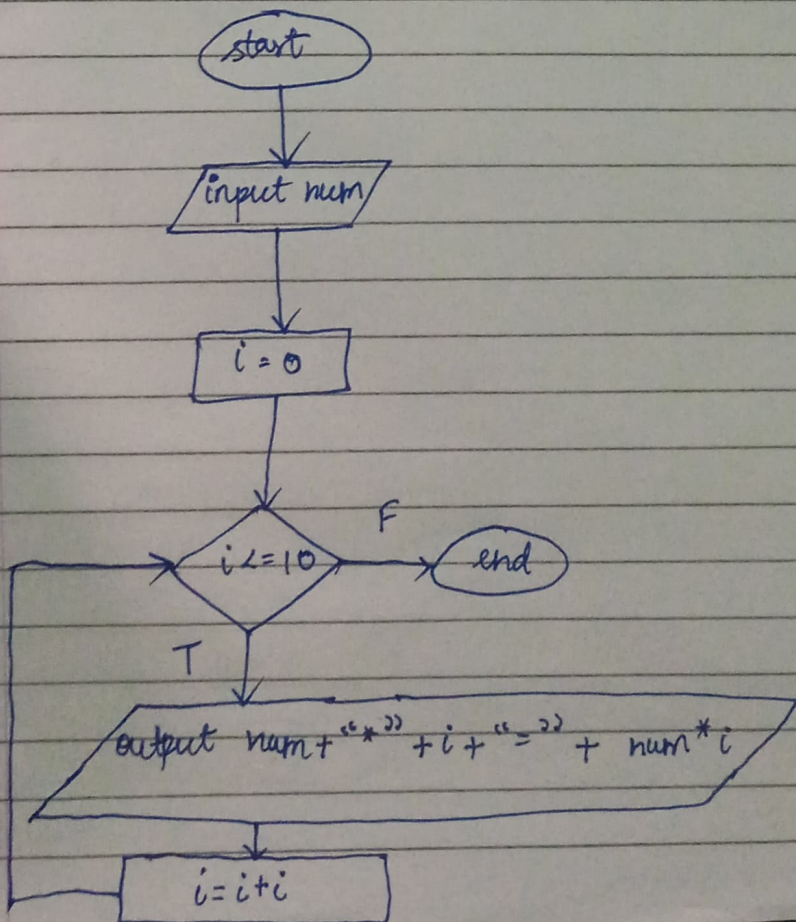 start
input num
i = 0
i <= 10
F
end
T
output num + “*” + i + “=” + num * i
i = i + i